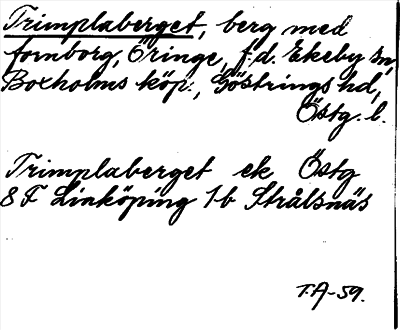 Trimplaberget, berg med
fornborg, Öringe, f.d. Ekeby sn,
Boxholms köp., Göstrings hd,
Östg. l.
Trimplaberget ek Östg
8 F Linköping 1b Strålsnäs
T.A-59.